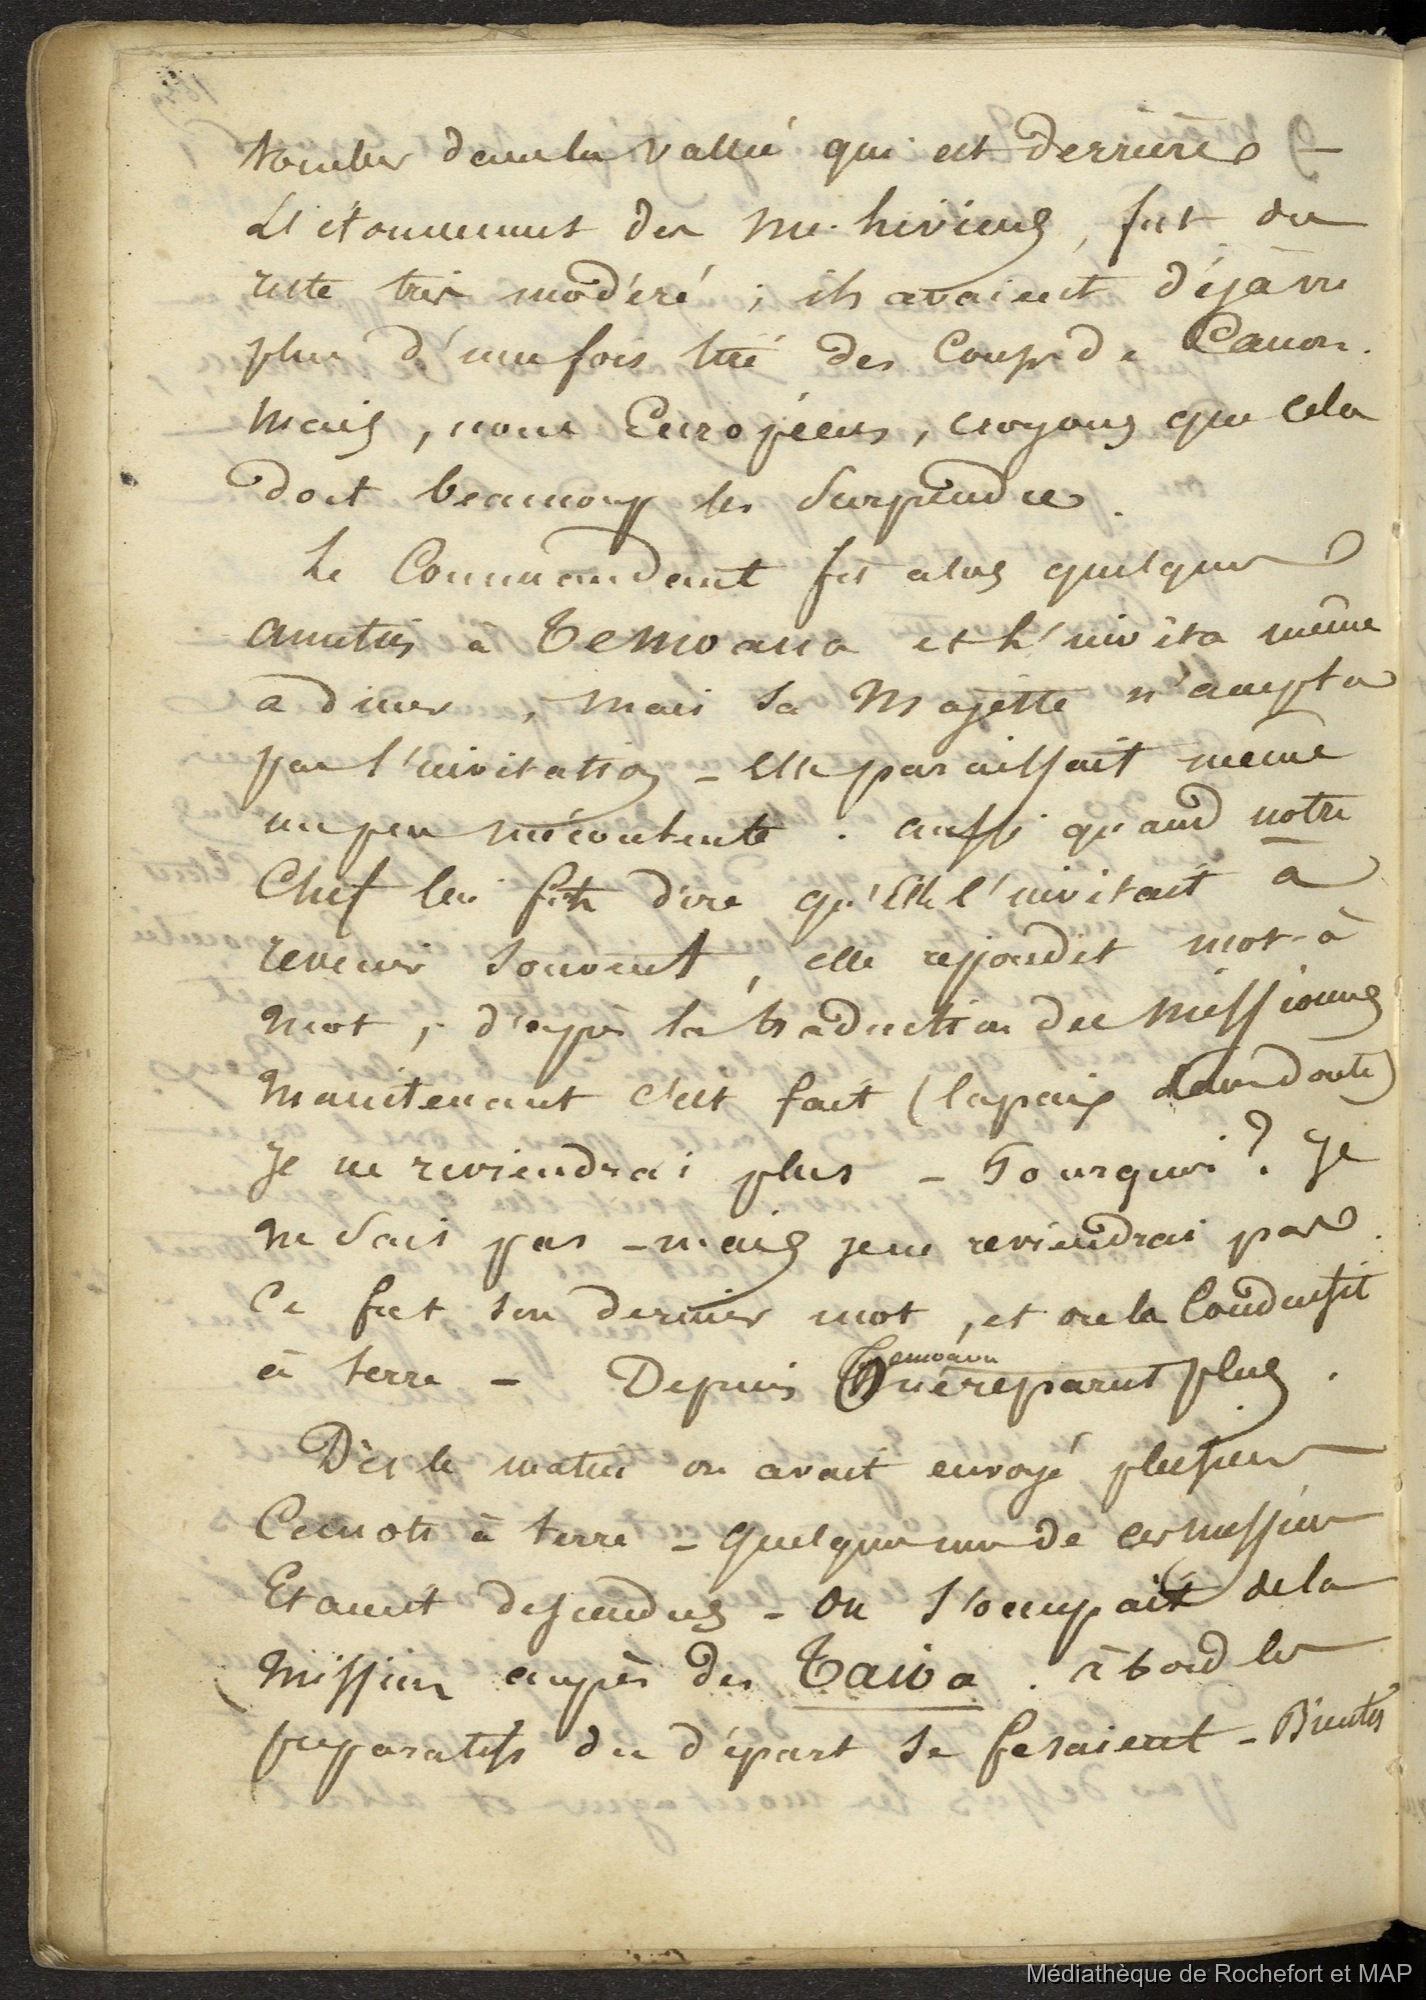 tomber dans la vallée qui est derrière –
L'étonnement des nu-hiviens, fut du
reste très modéré ; ils avaient déjà vu
plus d'une fois tiré des Coups de Canon.
Mais, nous Européens, croyons que cela
doit beaucoup les Surprendre.
Le Commandant fit alors quelques
amitiés à Temoana et l'invita même
a diner, mais sa Majesté n'accepta
pas l'invitation – Elle paraissait même
un peu mécontente. aussi quand notre
Chef lui fit dire qu'Elle l'invitait à
revenir souvent, elle repondit mot à
mot, d'après la traduction des Missionn
Maintenant c'est fait (la paix sans doute)
Je ne reviendrai plus – Pourquoi ? Je
ne Sais pas – mais je ne reviendrai pas.
Ce fut son dernier mot, et on la Conduisit
à terre – Depuis Temoana ne reparut plus.
Dès le matin on avait envoyé plusieurs
Canots à terre – quelques uns de ces messieurs
Etaient descendus – On s'occupait de la
Mission auprès des Taioa. à bord les
preparatifs du départ se fesaient – Bientôt
Médiathèque de Rochefort et MAP